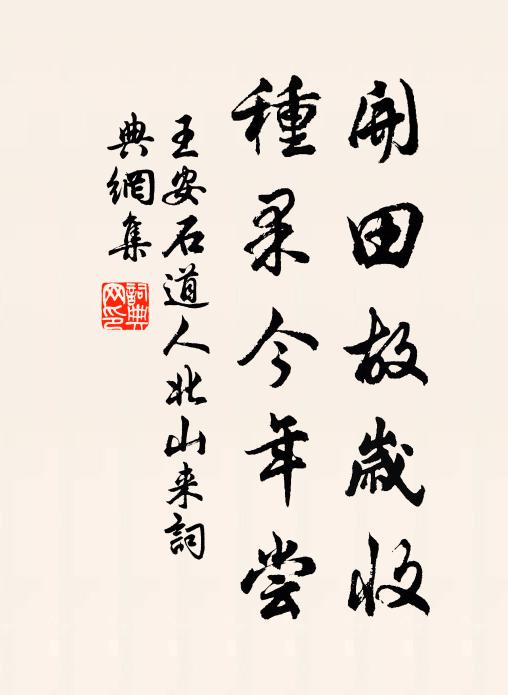 開田故歲收
種果今年嘗
王安石道人北山来詞
典網集
詞典
网印